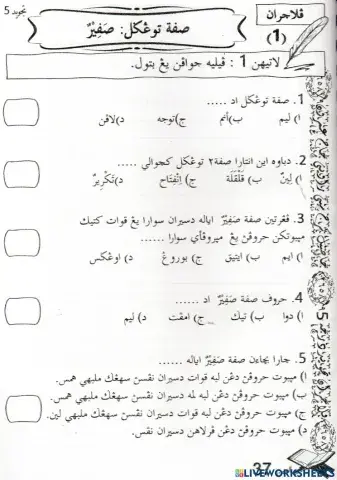 تجويد 5
ڤلاجرن
(1)
صفة توڠݢل: صَفِيْرٌ
لاتيهن 1 : ڤيليه جواڤن يڠ بتول.
1. صفة توڠݢل اد ......
ا) ليم ب) انم ج) توجه د) لاڤن
2. دباوه اين انتارا صفة٢ توڠݢل كچوالي ......
ا) لِيْنٌ ب) قَلْقَلَة ج) اِنْفِتَاح د) تَكْرِيرٌ
3. ڤڠرتين صفة صَفِيْرٌ اياله دسيران سوارا يڠ قوات كتيك
مڽبوتكن حروفڽ يڠ ميروڤاءي سوارا ......
ا) ايم ب) ايتيق ج) بوروڠ د) اوڠݢس
4. حروف صفة صَفِيْرٌ اد ......
ا) دوا ب) تيݢ ج) امڤت د) ليم
5. چارا بچاءن صفة صَفِيْرٌ اياله ......
ا) مڽبوت حروفڽ دڠن لبه قوات دسيران نفسن سهيڠݢ ملبيهي همس.
ب) مڽبوت حروفڽ دڠن لبه لمه دسيران نفسن سهيڠݢ ملبيهي همس.
ج) مڽبوت حروفڽ دڠن لبه قوات دسيران نفسن سهيڠݢ ملبيهي لين.
د) مڽبوت حروفڽ دڠن ڤرلاهن دسيران نفس.
37
LIVEWORKSHEETS